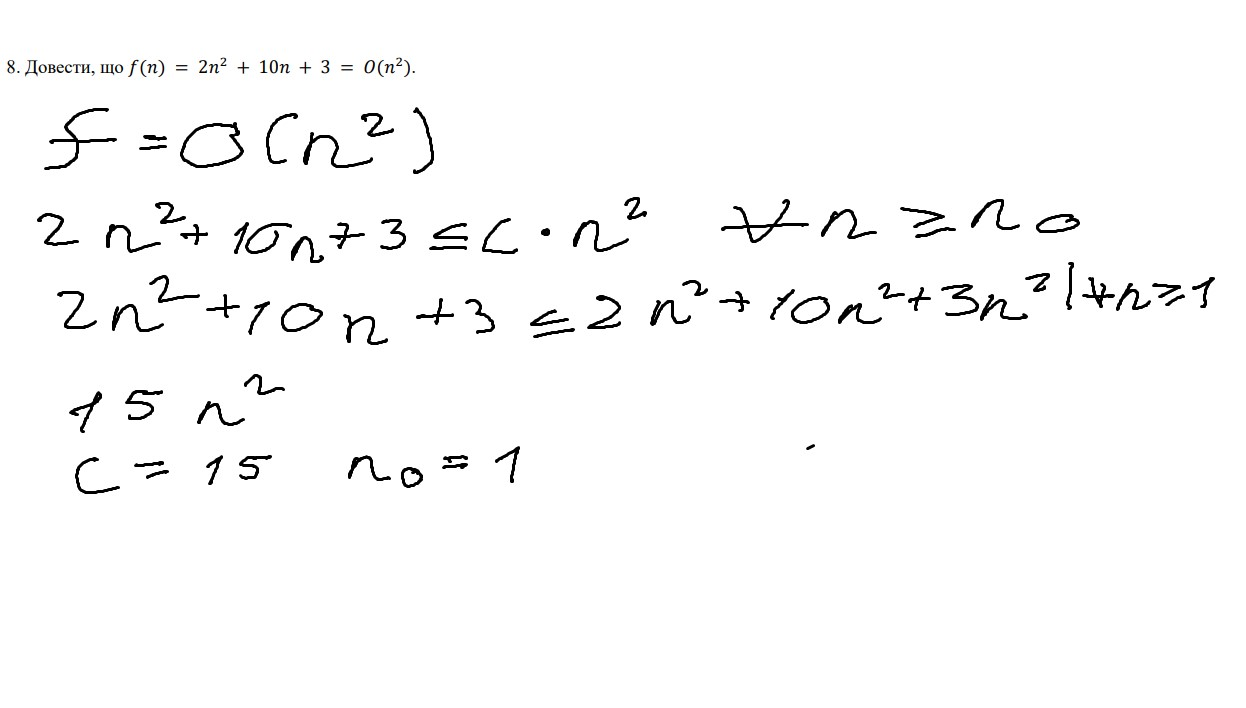 8. Довести, що f(n) = 2n² + 10n + 3 = O(n²).
f = O(n²)
2n² + 10n + 3 ≤ c · n² ∀n ≥ n₀
2n² + 10n + 3 ≤ 2n² + 10n² + 3n² | ∀n ≥ 1
15n²
c = 15 n₀ = 1